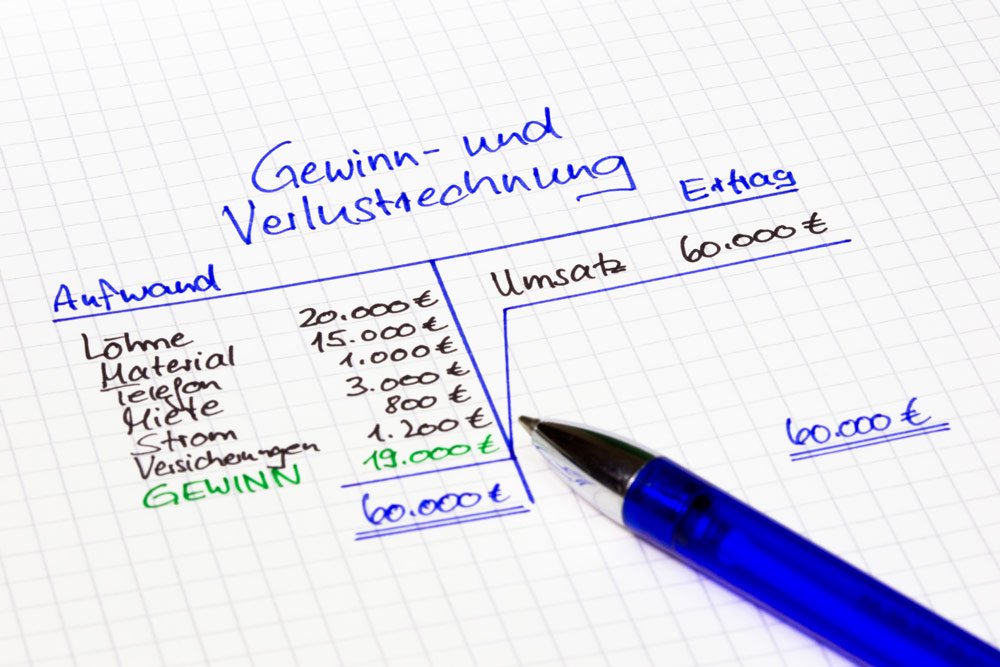 Gewinn- und
Verlustrechnung
Aufwand Ertrag
Löhne 20.000 €
Material 15.000 €
Telefon 1.000 €
Miete 3.000 €
Strom 800 €
Versicherungen 1.200 €
GEWINN 19.000 €
60.000 €
Umsatz 60.000 €
60.000 €